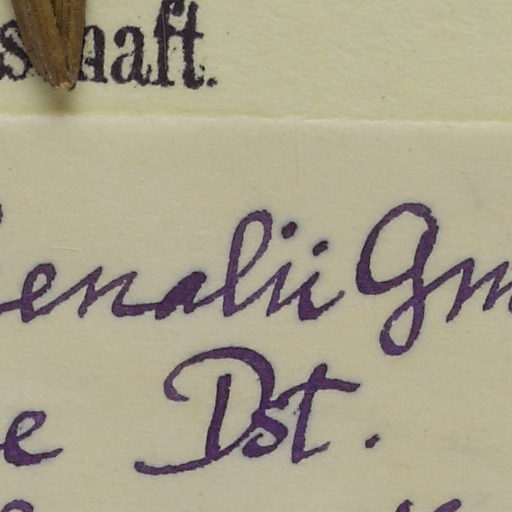 s haft.
enalii Gm
e Dst.